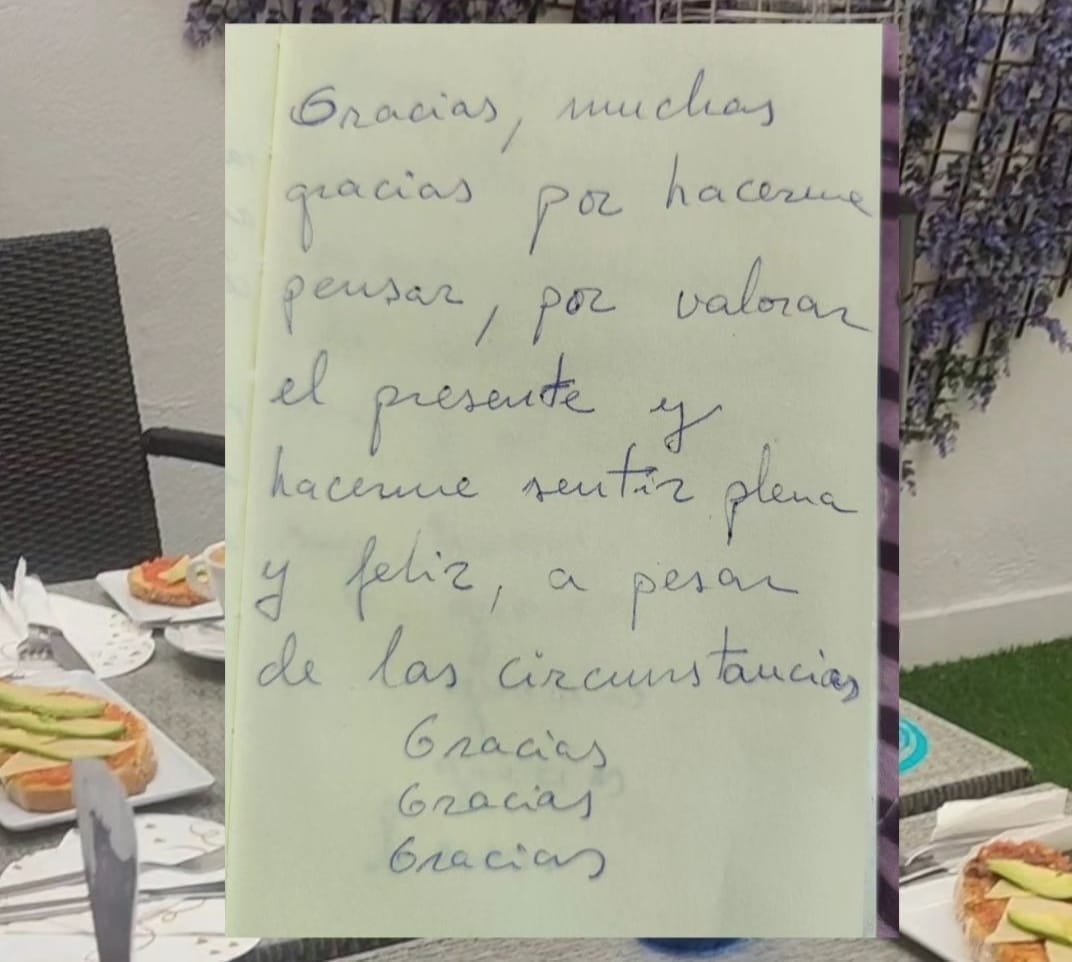 Gracias, muchas
gracias por hacerme
pensar, por valorar
el presente y
hacerme sentir plena
y feliz, a pesar
de las circunstancias
Gracias
Gracias
Gracias